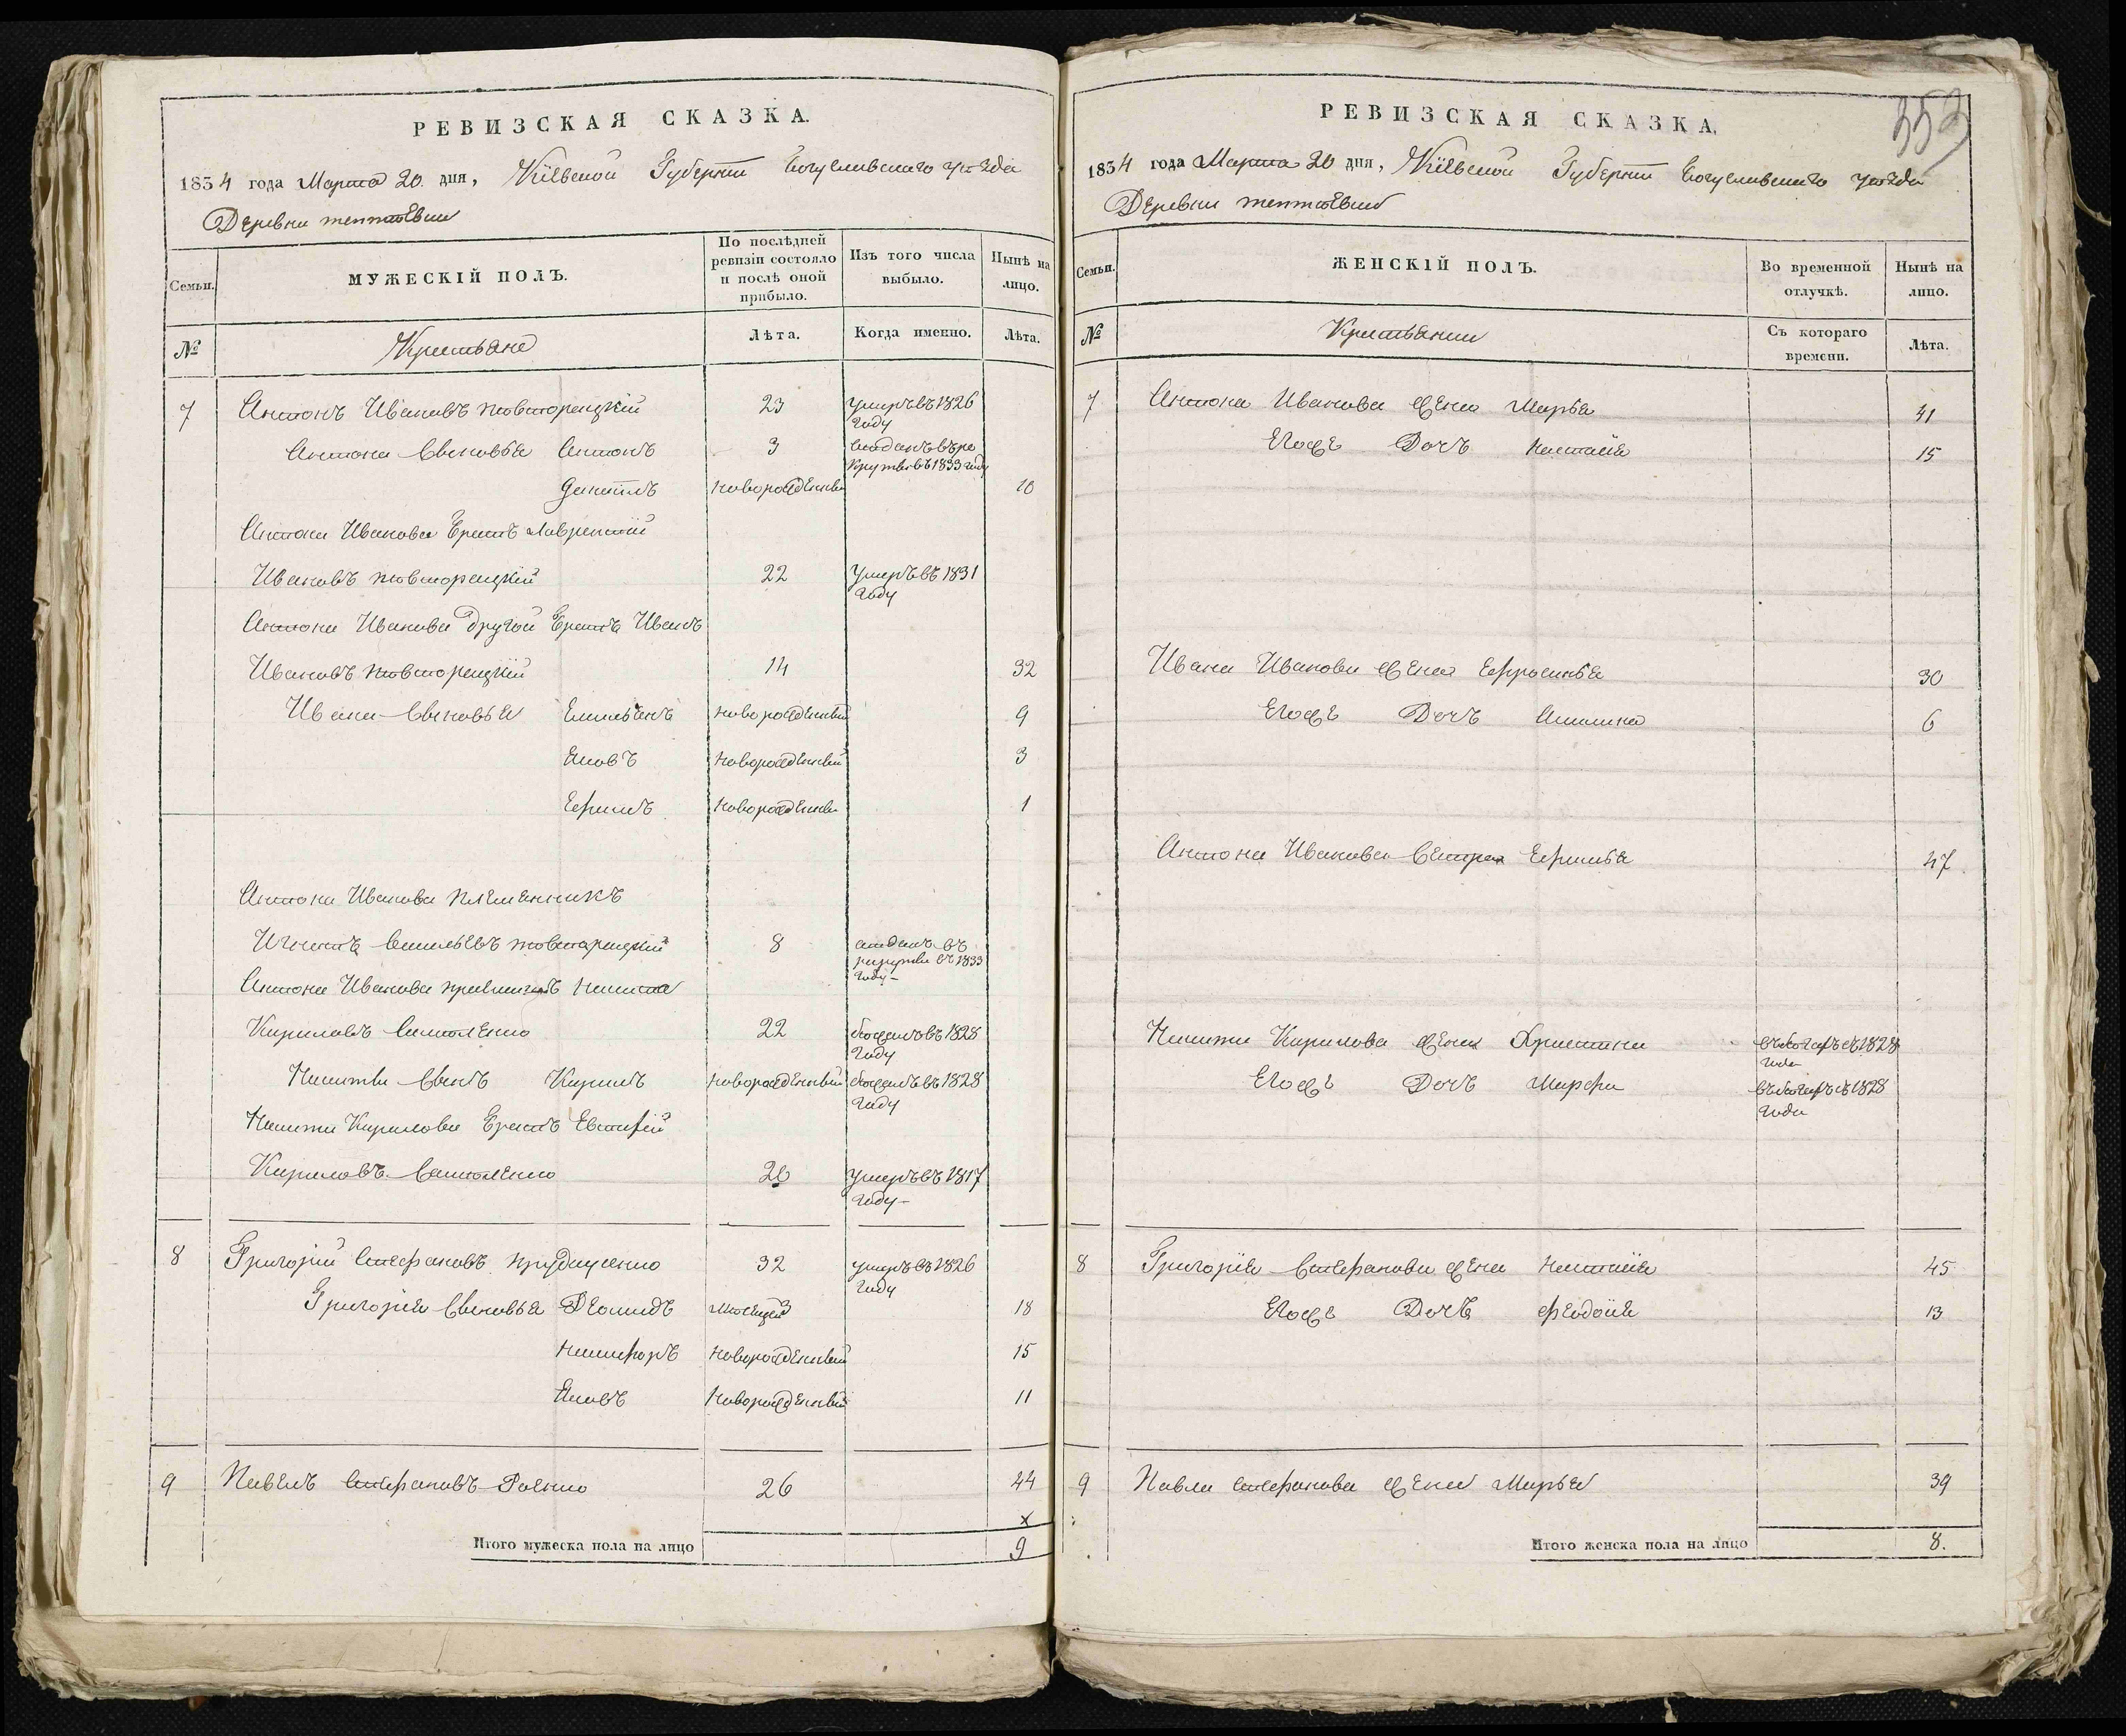 РЕВИЗСКАЯ СКАЗКА.
1834 года Марта 20 дня, Кіевской Губерніи Богуславскаго уѣзда
Деревни
Семьи.
МУЖЕСКІЙ ПОЛЪ.
По послѣдней ревизіи состояло и послѣ оной прибыло.
Изъ того числа выбыло.
Нынѣ на лицо.
№
Крестьяне
Лѣта.
Когда именно.
Лѣта.
7 Антонъ Ивановъ 23 умеръ въ 1826
году
Антона Сыновья Антонъ 3 отданъ въ ре
круты въ 1833 году
новорожденны 10
Антона Иванова Братъ Лаврентій
Ивановъ 22 Умеръ въ 1831
году
Антона Иванова другой Братъ Иванъ
Ивановъ 14 32
Ивана Сыновья Емельянъ новорожденный 9
Яковъ новорожденный 3
Ефимъ новорожденны 1
Антона Иванова племенникъ
Игнатъ Васильевъ 8 отданъ въ
рекруты въ 1833
году
Антона Иванова Никита
Кириловъ 22 бежалъ въ 1828
году
Никиты Сынъ Кирилъ новорожденный бежалъ въ 1828
году
Никиты Кирилова Братъ Евстафій
Кириловъ 20 Умеръ въ 1817
году
8 Григорій Стефановъ 32 умеръ въ 1826
году
Григорія Сыновья Деомидъ 18
Никифоръ новорожденный 15
Яковъ Новорожденный 11
9 Павелъ Стефановъ 26 44
х
Итого мужеска пола на лицо 9
353
РЕВИЗСКАЯ СКАЗКА.
1834 года Марта 20 дня, Кіевской Губерніи Богуславскаго уѣзда
Деревни
Семьи.
ЖЕНСКІЙ ПОЛЪ.
Во временной отлучкѣ.
Нынѣ на лицо.
№
Крестьянки
Съ котораго времени.
Лѣта.
7 Антона Иванова жена Марья 41
Егожъ Дочь Настасія 15
Ивана Иванова жена Ефросинья 30
Егожъ Дочь Акилина 6
Антона Иванова Сестра Ефимья 47
Никиты Кирилова жена Христина въ бегахъ съ 1828
года
Егожъ Дочь Марфа въ бегахъ съ 1828
года
8 Григорія Стефанова жена Настасія 45
Егожъ Дочь Феодосія 13
9 Павла Стефанова жена Марья 39
Итого женска пола на лицо 8.